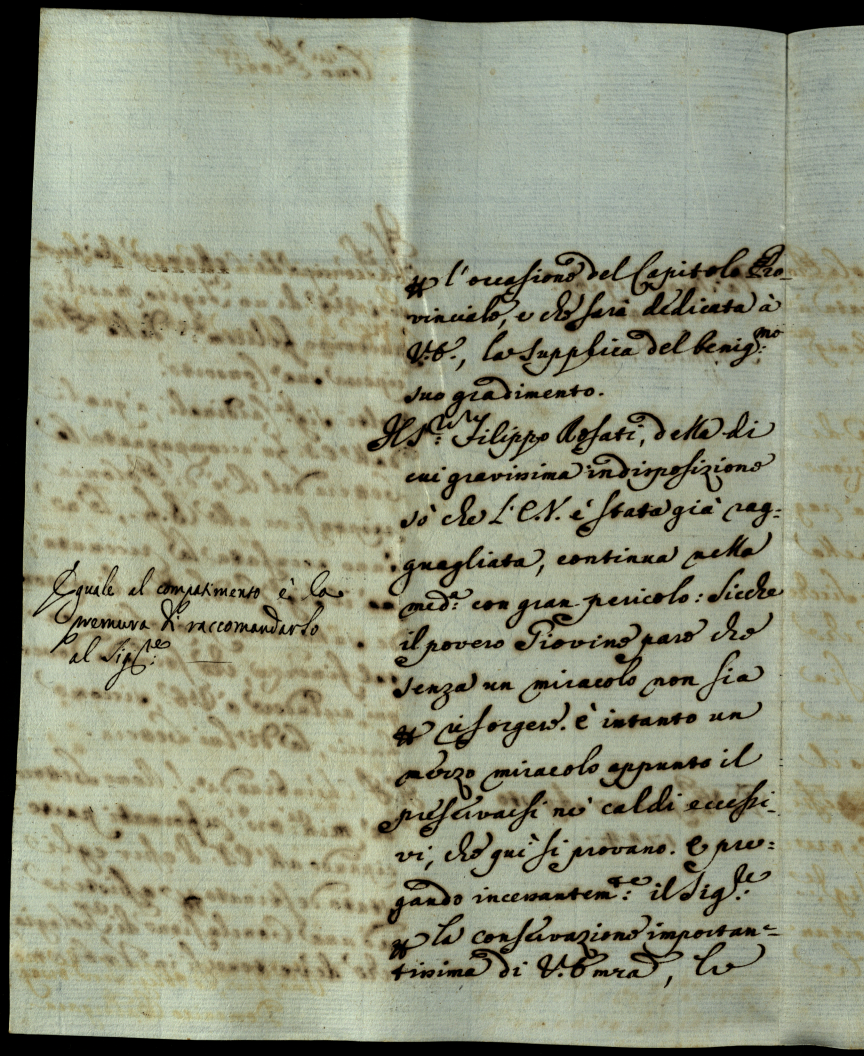 p l'occasione del Capitolo Pro-
vinciale, e che sarà dedicata à
V.E., la Supplica del benig:mo
suo gradimento.
Il S:r Filippo Rosati, della di
cui gravissima indisposizione
sò che l'E.V. è stata già rag:
guagliata, continua nella
med:a con gran pericolo: Sicche
il povero Giovine pare che
senza un miracolo non sia
p risorgere. è intanto un
mezzo miracolo appunto il
preservarsi ne' caldi eccessi-
vi, che qui si provano. e pre:
gando incessantem:te il Sig:re
p la conservazione importan-
tissima di V. Emza, le
Eguale al compatimento è la
premura di raccomandarlo
al Sig:re